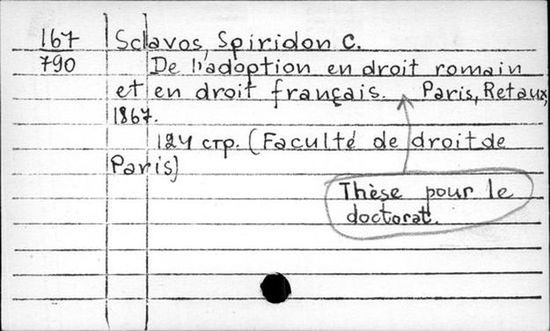 167 Sclavos, Spiridon C.
790 De l'adoption en droit romain
et en droit français. Paris, Retaux,
1867.
124 стр. (Faculté de droit de
Paris)
Thèse pour le
doctorat.